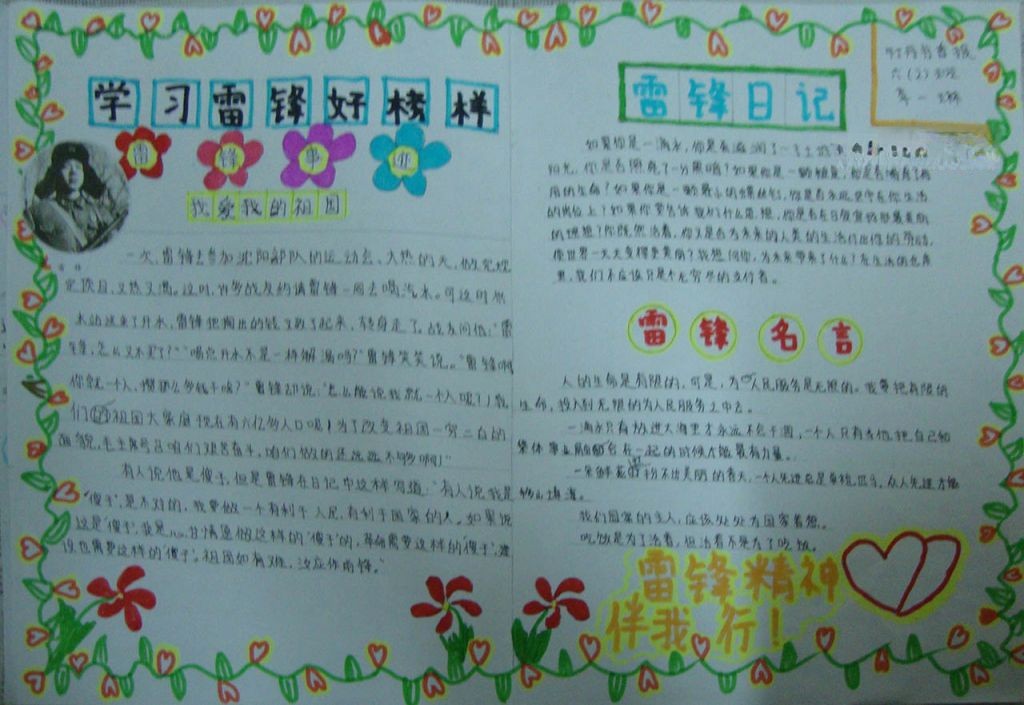 学习雷锋好榜样
雷锋事迹
我爱我的祖国
一次,雷锋去参加沈阳部队的运动会、大热的天,做完规
定项目,又热又渴。这时,许多战友约请雷锋一同去喝汽水。可这时
水站送来了开水,雷锋把掏出的钱又数了起来,转身走了。战友问他:"雷
锋,怎么又不买了?""喝完开水不是一样解渴吗?"雷锋笑笑说。"雷锋啊
你就一个人,攒那么多钱干啥?"雷锋却说:"怎么能说我就一个人呢?!我
们的祖国大家庭现在有六亿多人口呢!为了改变祖国一穷二白的
面貌,毛主席号召咱们艰苦奋斗,咱们做的还远远不够啊!"
有人说他是傻子,但是雷锋在日记中这样写道:"有人说我是
'傻子',是不对的,我要做一个有利于人民,有利于国家的人。如果说
这是'傻子',我是甘情愿做这样的'傻子'的,革命需要这样的'傻子',建
设也需要这样的'傻子'。祖国如有难,汝应作雨锋。"
雷锋日记
六(2)班
如果你是一滴水,你是否滋润了一寸土地
阳光,你是否照亮了一分黑暗?如果你是一颗粮食,你是否哺育了有
用的生命?如果你是一颗最小的螺丝钉,你是否永远坚守在你生活
的岗位上?如果你要告诉我们什么思想,你是否在日夜宣扬那最美丽
的理想?你既然活着,你又是否为未来的人类的生活付出你的劳动,
使世界一天天变得更美丽?我想问你,为未来带来了什么?在生活的仓库
里,我们不应该只是个无穷尽的支付者。
雷锋名言
人的生命是有限的,可是,为人民服务是无限的。我要把有限的
生命,投入到无限的为人民服务之中去。
一滴水只有放进大海里才永远不会干涸,一个人只有当他把自己和
集体事业融合在一起的时候才能最有力量。
一朵鲜花打扮不出美丽的春天,一个人先进总是单枪匹马,众人先进才能
够山填海。
我们国家的主人,应该处处为国家着想。
吃饭是为了活着,但活着不是为了吃饭。
雷锋精神
伴我行!